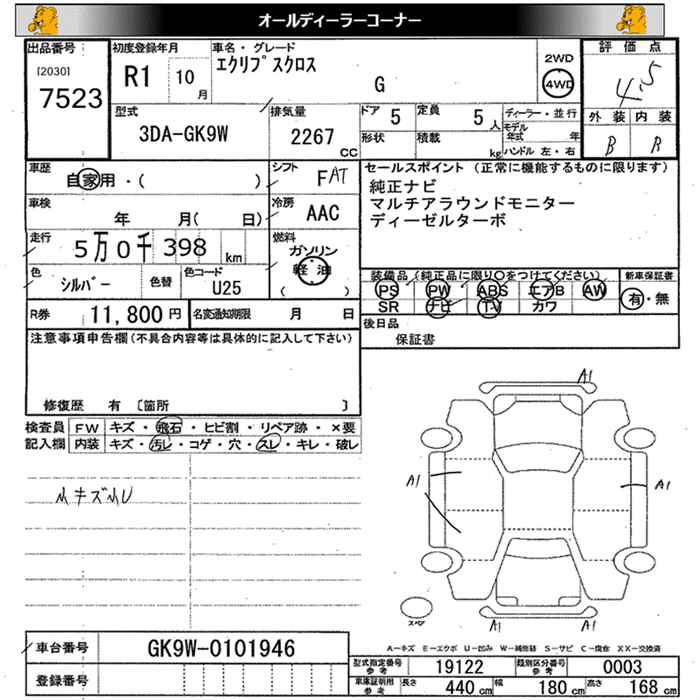 オールディーラーコーナー
出品番号 初度登録年月 車名・グレード 2WD 評価点
[2030] 7523 R1 10月 エクリプスクロス G 4WD 4.5
型式 排気量 ドア 5 定員 5人 ディーラー・並行 外装 内装
3DA-GK9W 2267 CC 形状 積載 kg モデル年式 年 B B
ハンドル 左・右
車歴 自家用・( ) シフト FAT セールスポイント (正常に機能するものに限ります)
車検 年 月( 日) 冷房 AAC 純正ナビ
マルチアラウンドモニター
ディーゼルターボ
走行 5万0千398 km 燃料 ガソリン 軽油 ( )
色 シルバー 色替 色コード U25
装備品(純正品に限り○をつけてください) 新車保証書
PS PW ABS エアB AW 有・無
SR ナビ TV カワ
R券 11,800円 名変通知期限 月 日 後日品
保証書
注意事項申告欄(不具合内容等は具体的に記入して下さい)
修復歴 有 〔箇所 〕
検査員 FW キズ・飛石・ヒビ割・リペア跡・×要
記入欄 内装 キズ・汚レ・コゲ・穴・スレ・キレ・破レ
小キズ小U
A1
A1 A1
A1 A1
スペア
A-キズ E-エクボ U-凹み W-補修跡 S-サビ C-腐食 XX-交換済
車台番号 GK9W-0101946
登録番号
型式指定番号 参考 19122 類別区分番号 参考 0003
車庫証明用 参考 長さ 440cm 幅 180cm 高さ 168cm